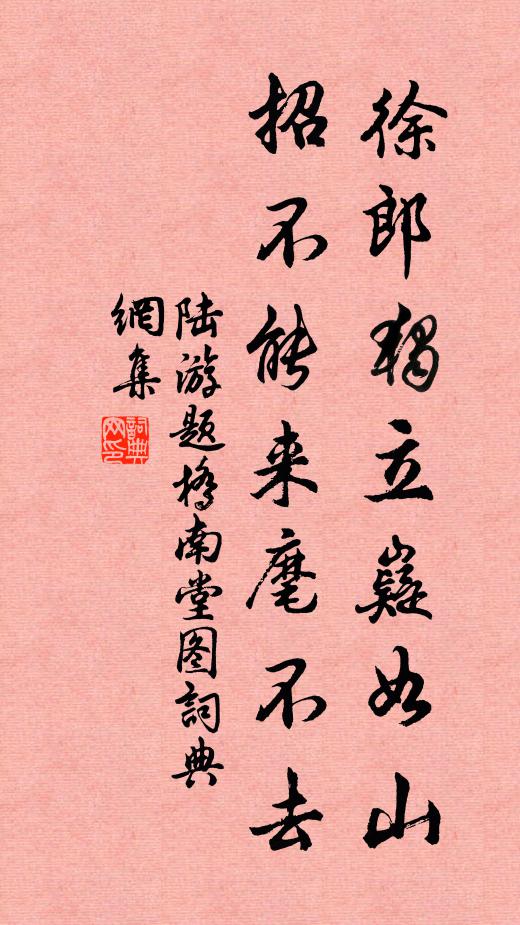 徐郎独立嶷如山
招不能来麾不去
陆游题桥南堂图詞典
網集
詞典网印